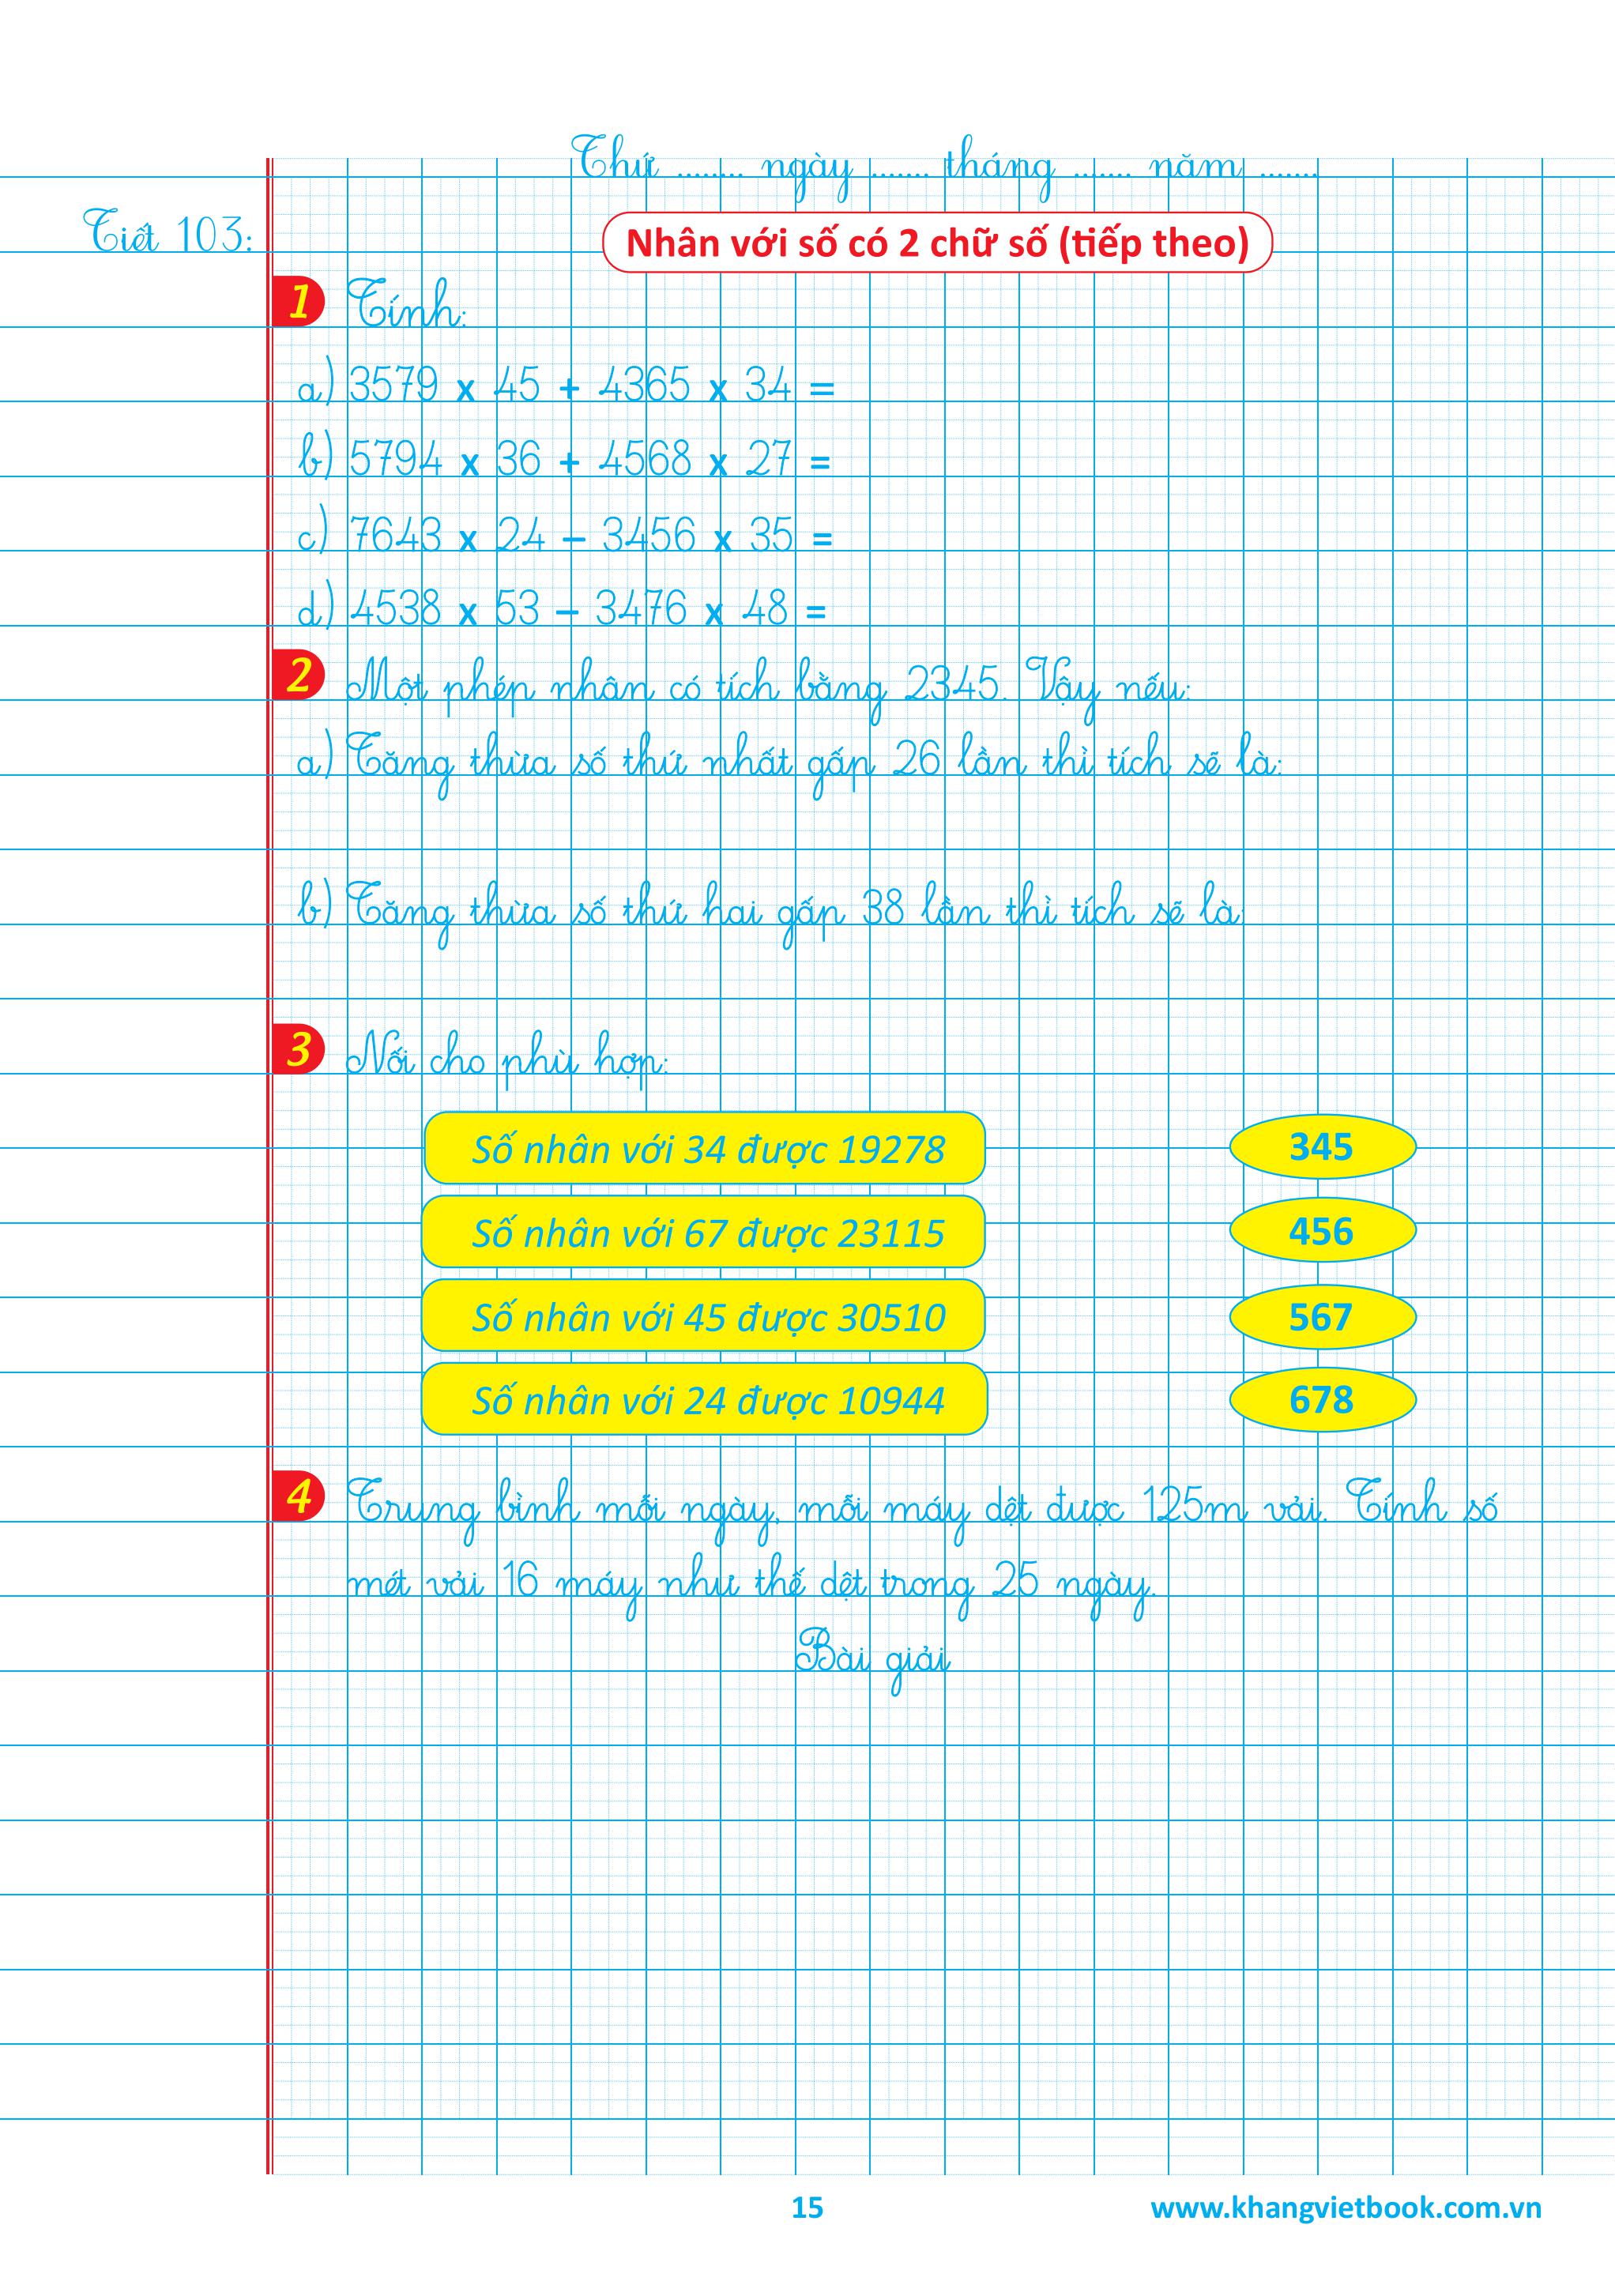 Thứ ........ ngày ....... tháng ....... năm .......
Tiết 103:
Nhân với số có 2 chữ số (tiếp theo)
1 Tính:
a) 3579 x 45 + 4365 x 34 =
b) 5794 x 36 + 4568 x 27 =
c) 7643 x 24 – 3456 x 35 =
d) 4538 x 53 – 3476 x 48 =
2 Một phép nhân có tích bằng 2345. Vậy nếu:
a) Tăng thừa số thứ nhất gấp 26 lần thì tích sẽ là:
b) Tăng thừa số thứ hai gấp 38 lần thì tích sẽ là:
3 Nối cho phù hợp:
Số nhân với 34 được 19278 345
Số nhân với 67 được 23115 456
Số nhân với 45 được 30510 567
Số nhân với 24 được 10944 678
4 Trung bình mỗi ngày, mỗi máy dệt được 125m vải. Tính số
mét vải 16 máy như thế dệt trong 25 ngày.
Bài giải
15 www.khangvietbook.com.vn